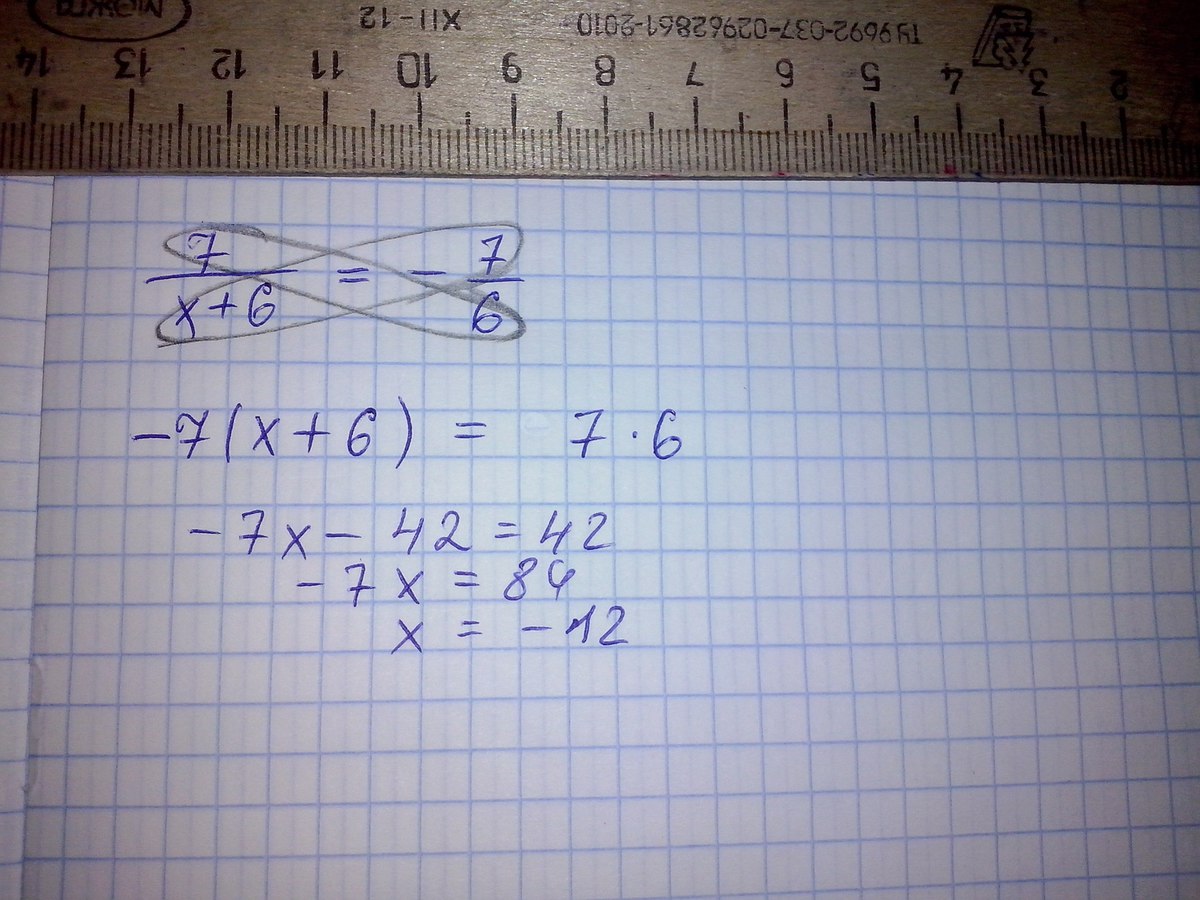 Можга
XII-12
ТУ9692-037-02962861-2010
14 13 12 11 10 9 8 7 6 5 4 3 2
7/(x+6) = - 7/6
-7(x+6) = 7·6
-7x - 42 = 42
-7x = 84
x = -12